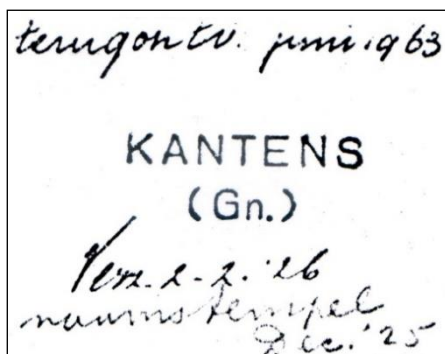 terugontv. juni 1963
KANTENS
(Gn.)
Verz. 2-2.'26
naamstempel
Dec.'25